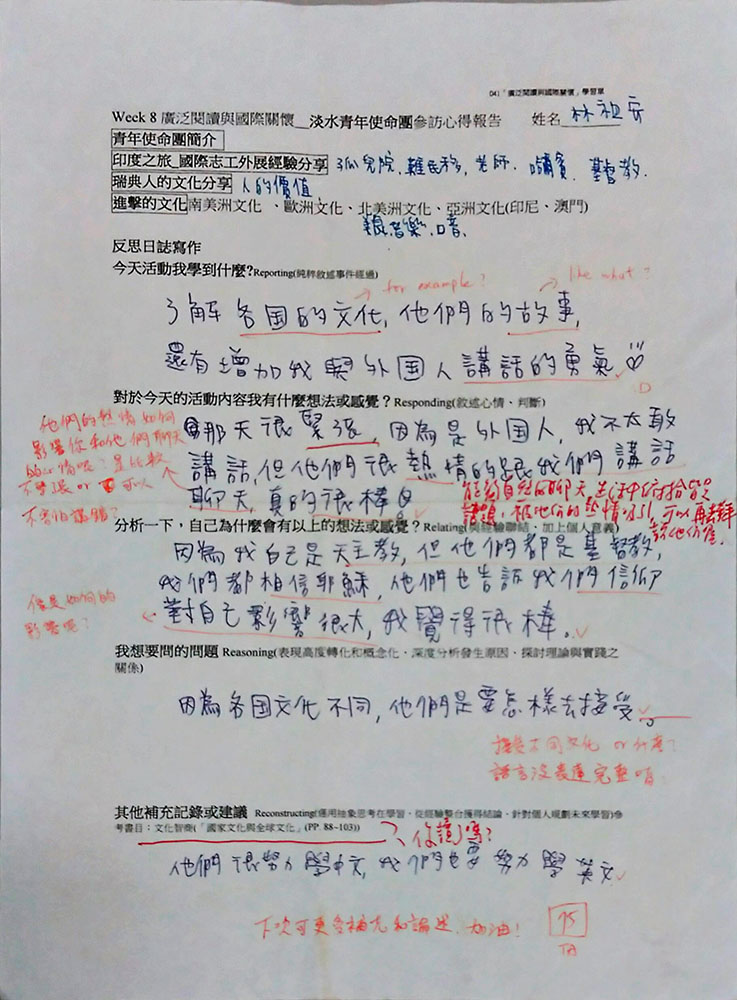 04)「廣泛閱讀與國際關懷」學習單
Week 8 廣泛閱讀與國際關懷__淡水青年使命團參訪心得報告 姓名 林祖安
青年使命團簡介
印度之旅_國際志工外展經驗分享 孤兒院、難民移, 老師、哺貧、基督教.
瑞典人的文化分享 人的價值
進擊的文化 南美洲文化 、歐洲文化、北美洲文化、亞洲文化(印尼、澳門)
音樂、口音.
反思日誌寫作
今天活動我學到什麼?Reporting(純粹敘述事件經過)
for example?
like what?
了解各国的文化, 他們的故事,
還有增加我與外国人講話的勇氣
對於今天的活動內容我有什麼想法或感覺？Responding(敘述心情、判斷)
那天很緊張, 因為是外国人, 我不太敢
講話, 但他們很熱情的跟我們講話
聊天, 真的很棒。
他們的熱情如何
影響你和他們聊天
的心情呢？是比較
不緊張or 可以
不害怕講錯？
分析一下，自己為什麼會有以上的想法或感覺？Relating(與經驗聯結、加上個人意義)
因為我自己是天主教, 但他們都是基督教,
我們都相信耶穌, 他們也告訴我們信仰
對自己影響很大, 我覺得很棒。
像是如何的
影響呢？
我想要問的問題 Reasoning(表現高度轉化和概念化、深度分析發生原因、探討理論與實踐之
關係)
因為各国文化不同, 他們是要怎樣去接受。
接受不同文化 or 什麼？
語言沒表達完整唷.
其他補充記錄或建議 Reconstructing(運用抽象思考在學習、從經驗整合獲得結論、針對個人規劃未來學習)參
考書目：文化智商(「國家文化與全球文化」(PP. 88~103))
你讀了嗎?
他們很努力學中文, 我們也要努力學英文
下次可更多補充和論述, 加油！
75
TA